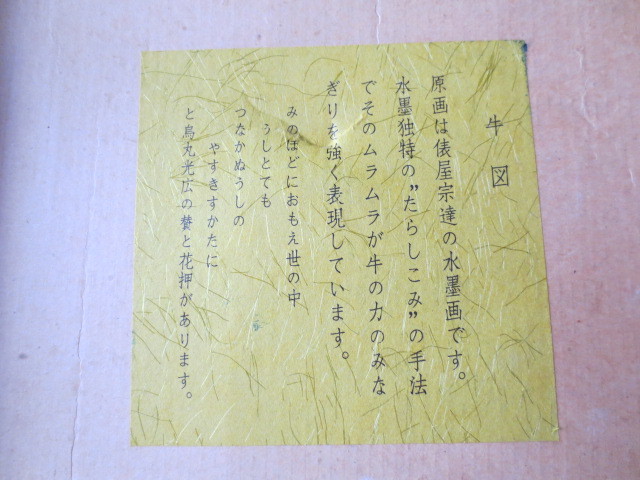 牛図
原画は俵屋宗達の水墨画です。
水墨独特の”たらしこみ”の手法
でそのムラムラが牛の力のみな
ぎりを強く表現しています。
みのほどにおもえ世の中
うしとても
つなかぬうしの
やすきすかたに
と烏丸光広の賛と花押があります。